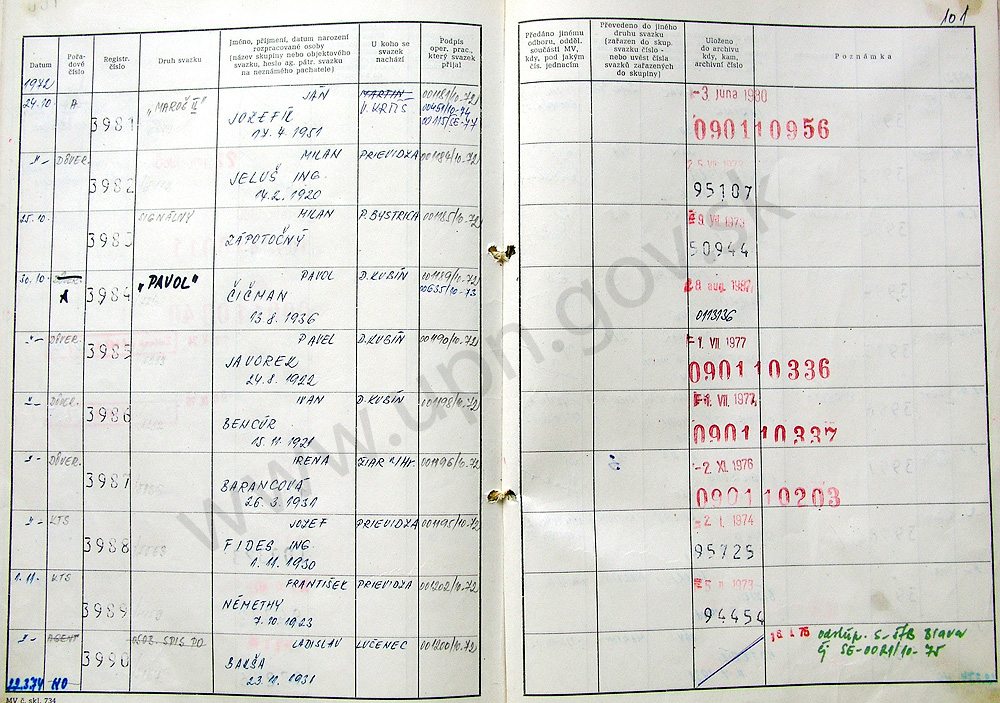 101
Datum
Pořadové číslo
Registr. číslo
Druh svazku
Jméno, příjmení, datum narození rozpracované osoby (název skupiny nebo objektového svazku, heslo ag. pátr. svazku na neznámého pachatele)
U koho se svazek nachází
Podpis oper. prac., který svazek přijal
Předáno jinému odboru, odděl. součásti MV, kdy, pod jakým čís. jednacím
Převedeno do jiného druhu svazku (zařazen do skup. svazku číslo - nebo uvést čísla svazků zařazených do skupiny)
Uloženo do archivu kdy, kam, archivní číslo
Poznámka
1972
24.10 A 3981 „MAROŠ II" JÁN MARTIN 001181/10-72
JOZEFÍK V. KRTÍŠ 00451/10-74
17.4.1951 00115/SE-77
-3. júna 1980
090110956
DÔVER. 3982 MILAN PRIEVIDZA 001184/10-72
JELUŠ ING.
14.2.1920
95107
25.10. 3983 SIGNÁLNY MILAN P. BYSTRICA 001185/10-72
ZÁPOTOČNÝ
9. VII. 1973
50944
30.10. A 3984 „PAVOL" PAVOL D. KUBÍN 001189/10-72
ČIČMAN 00635/10-73
13.8.1936
28. aug. 1987
0113136
DÔVER. 3985 PAVEL D. KUBÍN 001190/10-72
JAVOREK
24.8.1922
-1. VII. 1977
090110336
DÔVER. 3986 IVAN D. KUBÍN 001198/10-72
BENCÚR
15.11.1921
-1. VII. 1977
090110337
DÔVER. 3987 IRENA ŽIAR n/Hr. 001196/10-72
BARANCOVÁ
26.3.1931
-2. XI. 1976
090110203
KTS 3988 JOZEF PRIEVIDZA 001195/10-72
FIDES ING.
1.11.1930
-2. I. 1974
95725
1.11. KTS 3989 FRANTIŠEK PRIEVIDZA 001202/10-72
NÉMETHY
7.10.1923
94454
AGENT 3990 LADISLAV LUČENEC 001200/10-72
BARŠA
23.11.1931
odstúp. S-ŠTB
čj SE-0021/10-75
MV č. skl. 734
www.upn.gov.sk